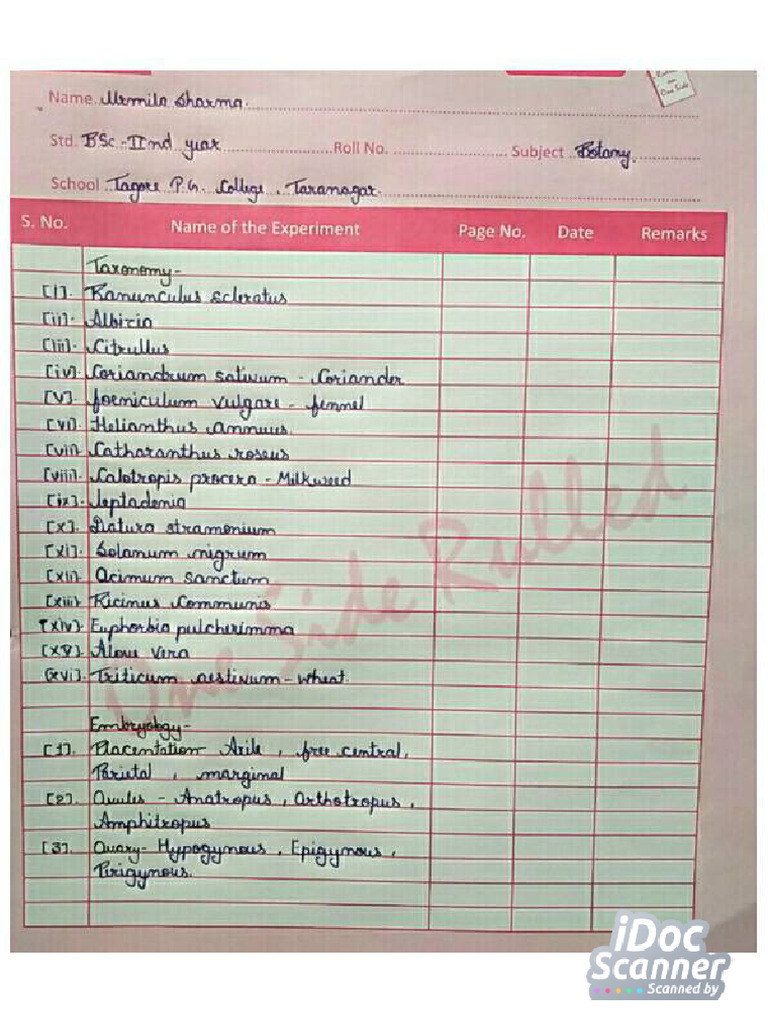 Name Urmila Sharma
Std. BSc - IInd year Roll No. Subject Botany
School Tagore P.G. College, Taranagar.
S. No. Name of the Experiment Page No. Date Remarks
Taxonomy-
[i]. Ranunculus scleratus
[ii]. Albizia
[iii]. Citrullus
[iv]. Coriandrum sativum - Coriander
[v]. foeniculum vulgare - fennel
[vi]. Helianthus annuus.
[vii]. Catharanthus roseus
[viii]. Calotropis procera - Milkweed
[ix]. Leptadenia
[x]. Datura stramonium
[xi]. Solanum nigrum
[xii]. Ocimum sanctum
[xiii]. Ricinus Communis
[xiv]. Euphorbia pulcherimma
[xv]. Aloue vera
[xvi]. Triticum aestivum - wheat.
Embryology-
[1]. Placentation- Axile, free central,
Parietal, marginal
[2]. Ovules - Anatropus, Orthotropus,
Amphitropus
[3]. Ovary- Hypogynous, Epigynous,
Perigynous.
One Side Rulled
iDoc
Scanner
Scanned by